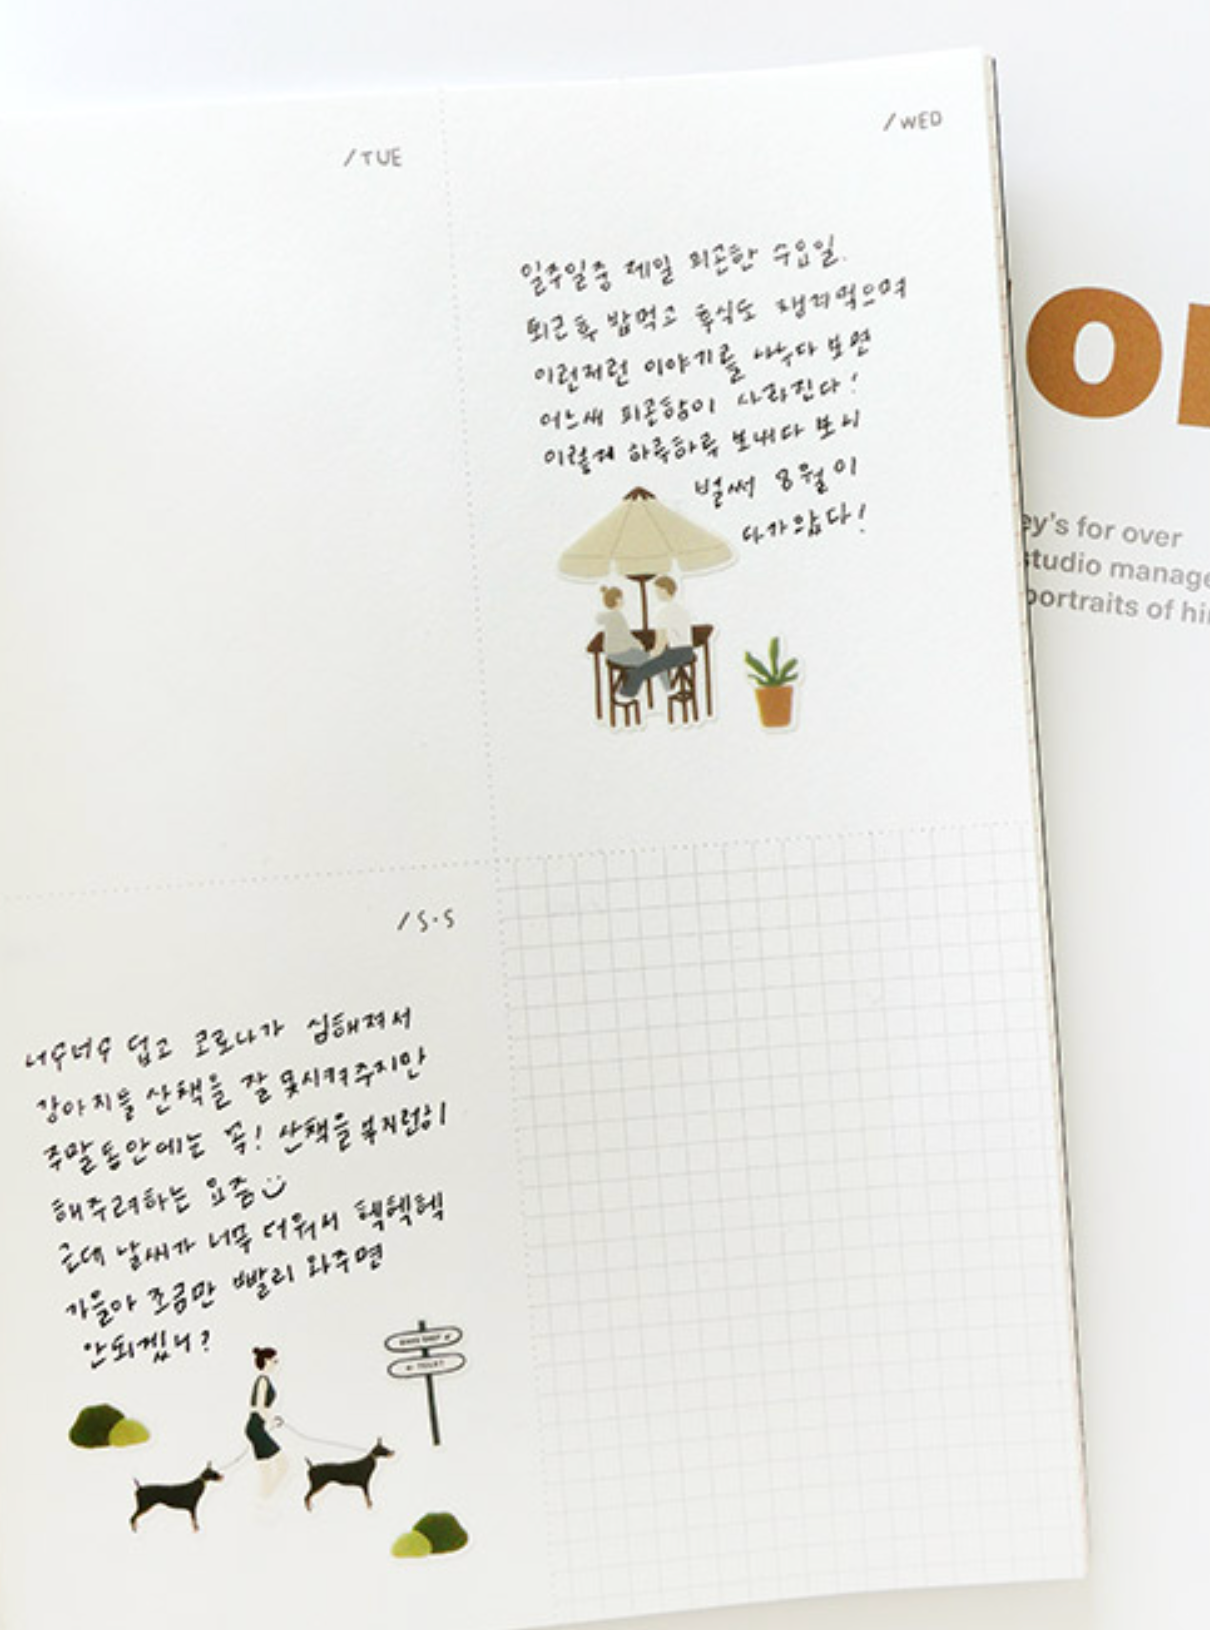 /TUE
/WED
일주일중 제일 피곤한 수요일.
퇴근 후 밥먹고 후식도 챙겨먹으며
이런저런 이야기를 나누다 보면
어느새 피곤함이 사라진다!
이렇게 하루하루 보내다 보니
벌써 8월이
다가왔다!
/S·S
너무너무 덥고 코로나가 심해져서
강아지들 산책을 잘 못시켜주지만
주말동안에는 꼭! 산책을 부지런히
해주려하는 요즘
근데 날씨가 너무 더워서 헥헥헥
가을아 조금만 빨리 와주면
안되겠니?
TOILET
or
ey's for over
studio manage
portraits of hi